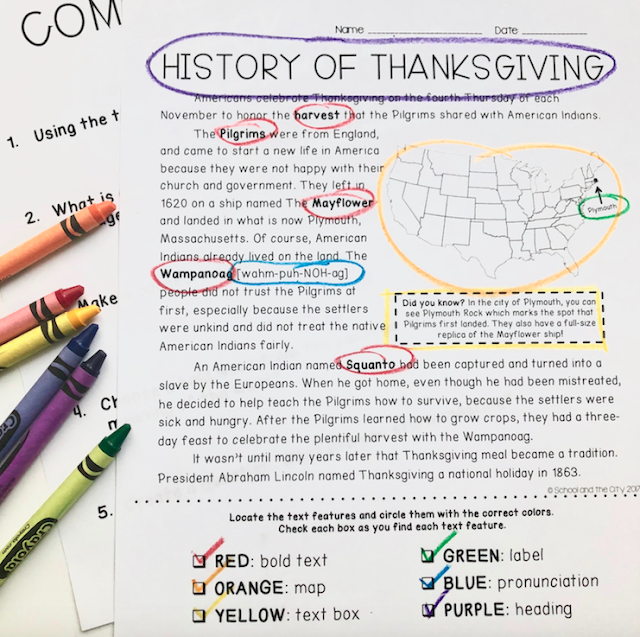 COM
Name
Date
HISTORY OF THANKSGIVING
Americans celebrate Thanksgiving on the fourth Thursday of each
November to honor the harvest that the Pilgrims shared with American Indians.
The Pilgrims were from England,
and came to start a new life in America
because they were not happy with their
church and government. They left in
1620 on a ship named The Mayflower
and landed in what is now Plymouth,
Massachusetts. Of course, American
Indians already lived on the land. The
Wampanoag [wahm-puh-NOH-ag]
people did not trust the Pilgrims at
first, especially because the settlers
were unkind and did not treat the native
American Indians fairly.
Plymouth
Did you know? In the city of Plymouth, you can
see Plymouth Rock which marks the spot that
Pilgrims first landed. They also have a full-size
replica of the Mayflower ship!
An American Indian named Squanto had been captured and turned into a
slave by the Europeans. When he got home, even though he had been mistreated,
he decided to help teach the Pilgrims how to survive, because the settlers were
sick and hungry. After the Pilgrims learned how to grow crops, they had a three-
day feast to celebrate the plentiful harvest with the Wampanoag.
It wasn't until many years later that Thanksgiving meal became a tradition.
President Abraham Lincoln named Thanksgiving a national holiday in 1863.
© School and the City 2017
Locate the text features and circle them with the correct colors.
Check each box as you find each text feature.
RED: bold text
ORANGE: map
YELLOW: text box
GREEN: label
BLUE: pronunciation
PURPLE: heading
1. Using the t
2. What is
4. Ch
5.
Crayola